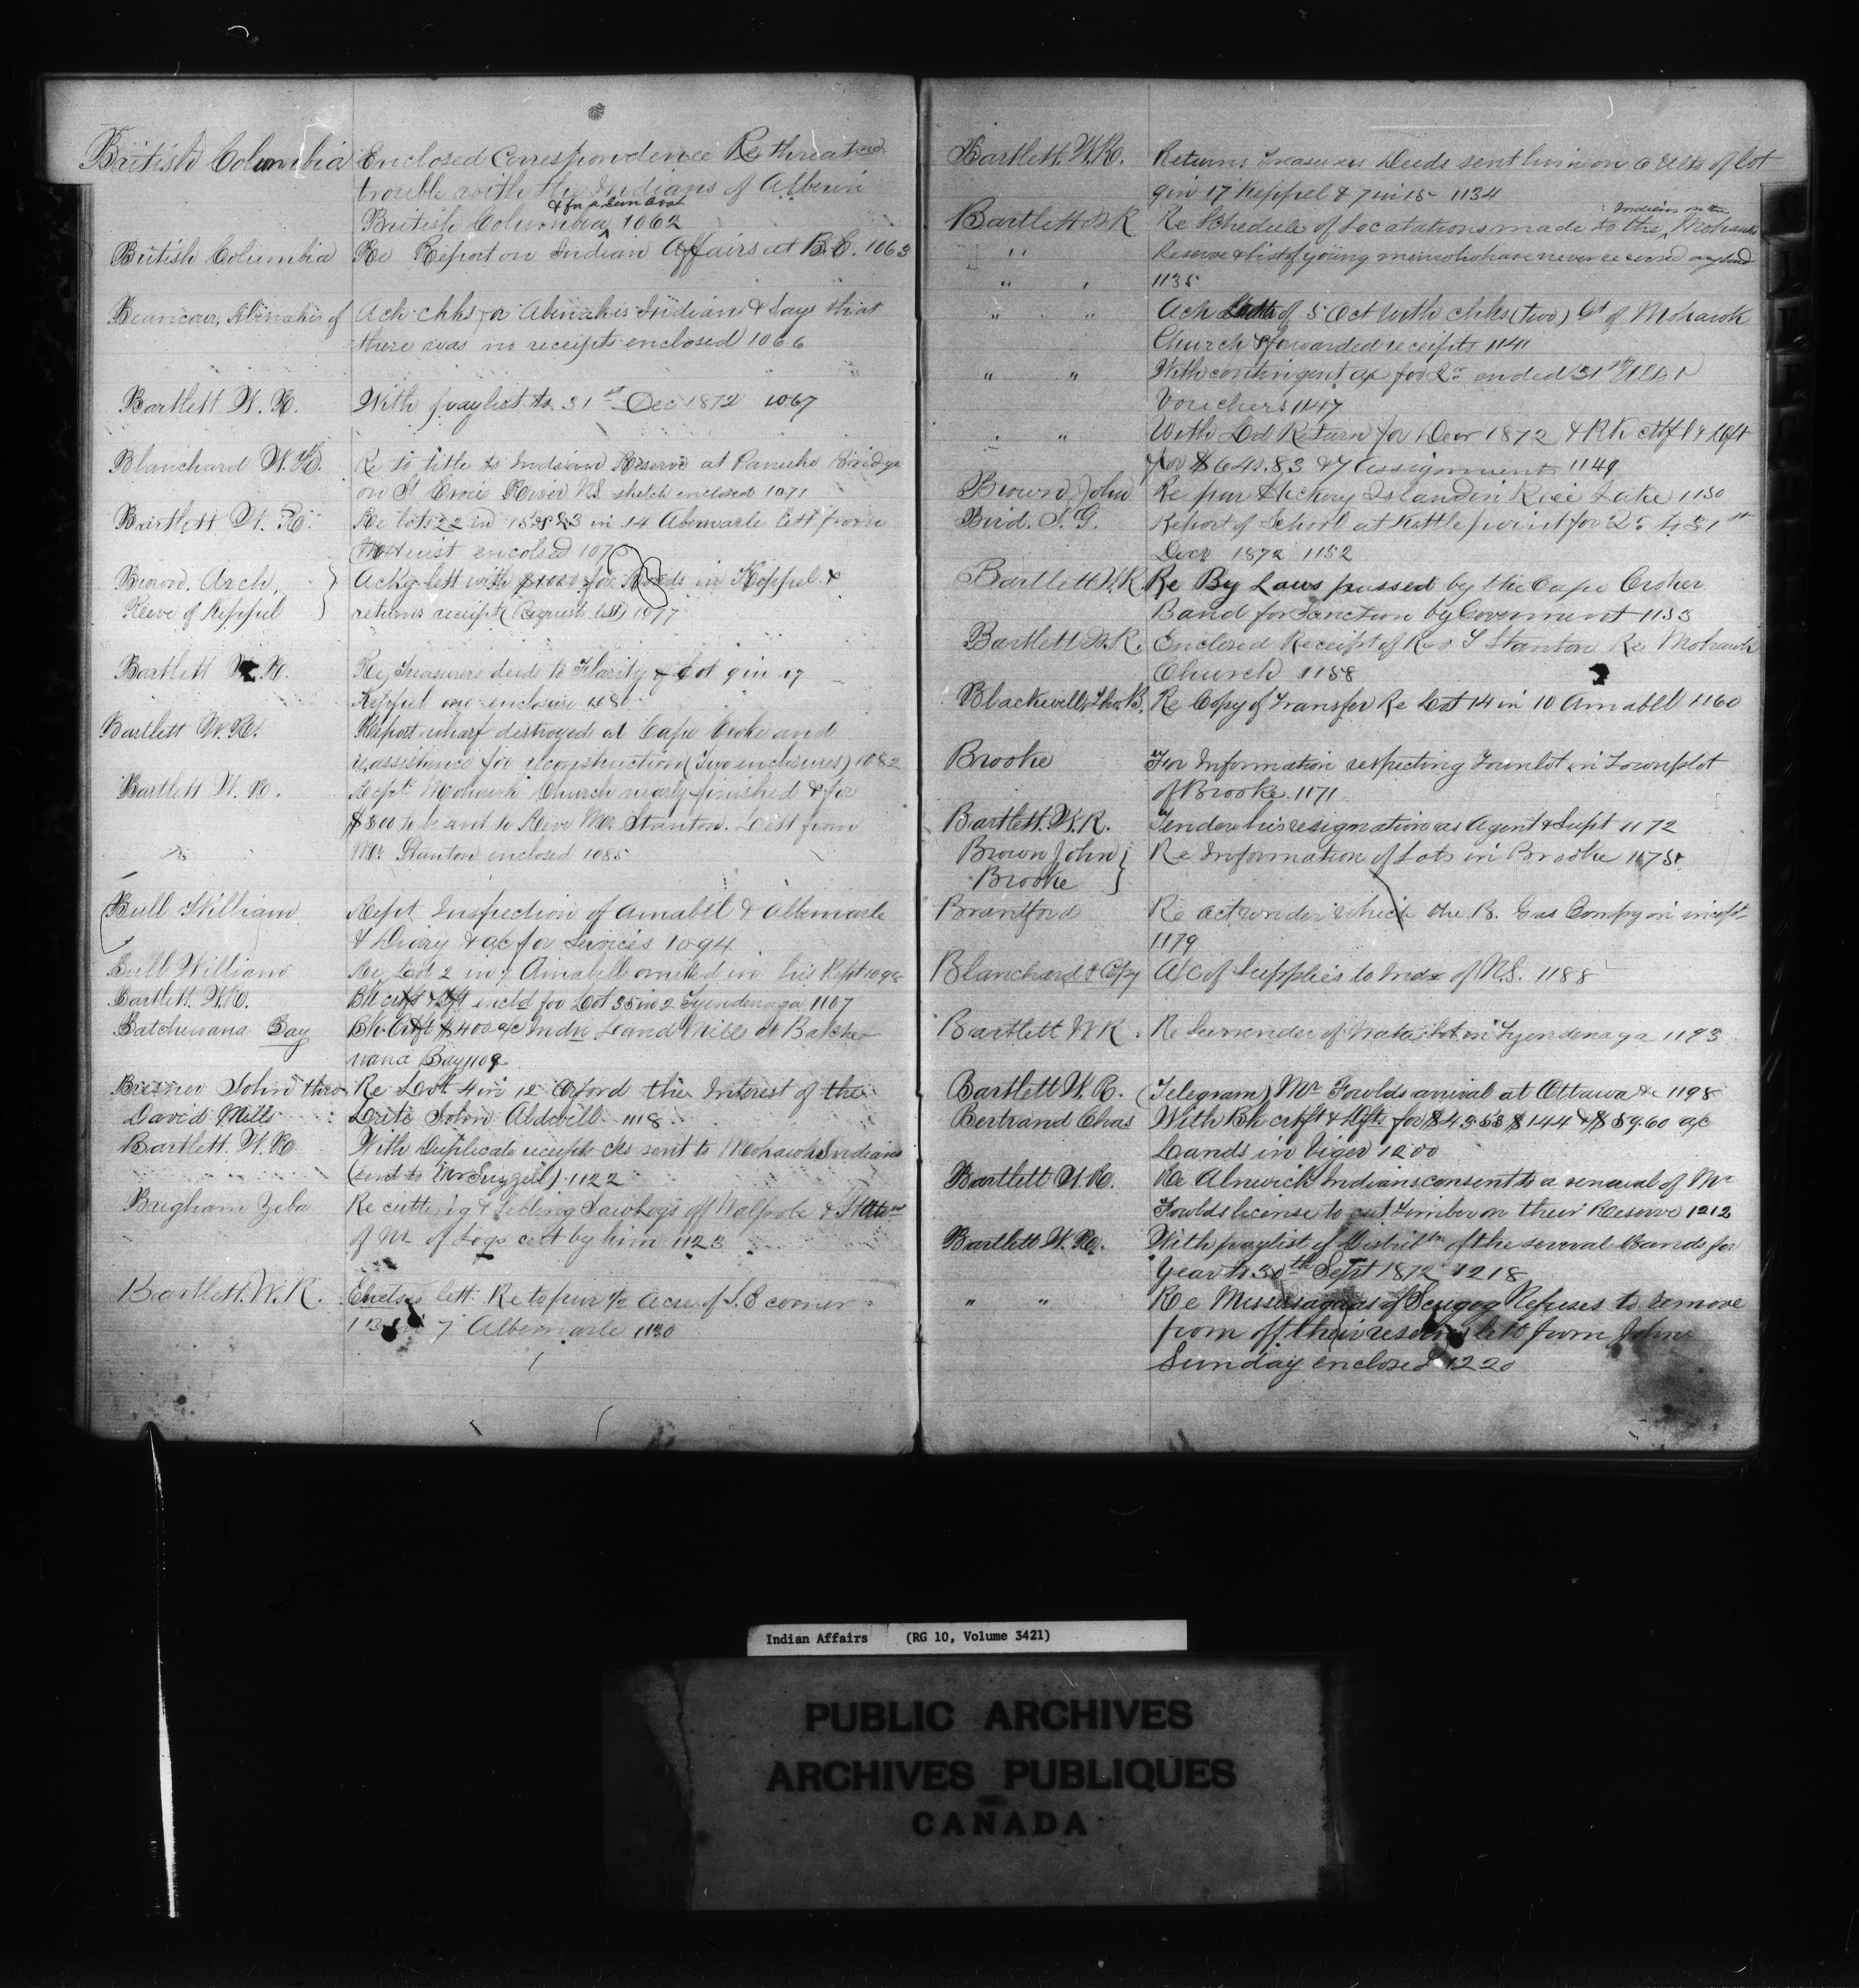 British Columbia Enclosed Correspondence Re threatned
trouble with the Indians of Alberni
& for a Gun Boat
British Columbia 1062
British Columbia Re Report on Indian Affairs at B.C. 1063
Becancour, Abenakis of Ack chks for Abenakis Indians & Says that
there was no receipts enclosed 1066
Bartlett W. R. With paylist to 31st Dec 1872 1067
Blanchard W. H. Re to title to Indian Reserve at Bridge
on St Croix River N.S. sketch enclosed 1071
Bartlett W. R. Re lots 22 in 15 & 23 in 14 Abemarle lett from
enclosed
Brown, Arch, Ackg lett with for Deeds in Keppel &
Reeve of Keppel returns receipt (Request lett) 1077
Bartlett W. R. Re Treasurers deeds to Flarity of Lot 9 in 17
Keppel one enclosure 1080
Bartlett W. R. Report wharf destroyed at Cape Croke and
assistance for reconstruction (Two enclosures) 1082
Bartlett W. R. Rept Mohawk Church nearly finished & for
$800 to be sent to Revr Mr Stanton. Lett from
Mr Stanton enclosed 1085
Bull William Rept Inspection of Amabel & Albemarle
& Diary & a/c for Services 1094
Bull William Re Lot 2 in 7 Amabell omitted in his Rept
Bartlett. W. R. Bk Cfft & Dft encld for Lot 35 in 2 Tyendenaga 1107
Batchewana Bay Bk Cfft $400 a/c Indn Land Mills at Batche
wana Bay 1109
John thro Re Lot 4 in 12 Orford the Interest of the
David Mills John 1118
Bartlett. W. R. With Duplicate receipts cks sent to Mohawk Indians
(sent to Mr ) 1122
Brigham Zeba Re cutting & felling Sawlogs off Walpole &
of Nr of Logs cut by him 1123
Bartlett. W. R. lett. Re to pur 1/2 Acre of S.E corner
7 Albemarle 1130
Bartlett. W. R. Returns Treasurers Deeds sent him on 6 Ulto of lot
9 in 17 Keppel & 7 in 15 1134
Indians on the
Bartlett W R Re Schedule of Locatations made to the Mohawk
" Reserve & list of young men who have never received any land
" " 1135
" " Ack Lett of 5 Oct with chks (two) a/ct of Mohawk
Church & forwarded receipts 1141
" " With contingent a/c for Qr ended 31st Ulto
Vouchers 1147
" " With Ld Return for Decr 1872 & Bk ctff & Dft
for $640.83 & 7 Assignments 1149
Brown, John Re pur Hickory Island in Rice Lake 1150
Bird. S. G. Report of School at Kettle point for Qr to 31st
Decr 1872 1152
Bartlett W. R. Re By Laws passed by the Cape Croker
Band for Sanction by Government 1153
Bartlett W. R. Enclosed Receipt of Rev Stanton Re Mohawk
Church 1158
Blackwell, Thos. B. Re Copy of Transfer Re Lot 14 in 10 Amabll 1160
Brooke For Information respecting Town lot in Townplot
of Brooke. 1171
Bartlett. W. R. Tender his resignation as Agent & Supt 1172
Brown John Re Information of Lots in Brooke
Brooke
Brantford Re act under which the B. Gas Compy on
1179
Blanchard & Copy A/C of Supplies to Inds of N.S. 1188
Bartlett W R. Re Surrender of Water lot in Tyendenaga 1193
Bartlett W. R. (Telegram) Mr Fowlds arrival at Ottawa &c 1198
Bertrand Chas With Bk crfft & Dfts for $43.53 $144 & $59.60 a/c
Lands in Viger 1200
Bartlett W. R. Re Alnwick Indians consent to a renewal of Mr
Fowlds license to cut timber on their Reserve 1212
Bartlett W. R. With paylist of Distribtn of the several Bands for
Year to 30th Sept 1872 1218
" " Re Mississaguas of Scugog Refuses to remove
from off their reserve lett from John
Sunday enclosed 1220
Indian Affairs (RG 10, Volume 3421)
PUBLIC ARCHIVES
ARCHIVES PUBLIQUES
CANADA